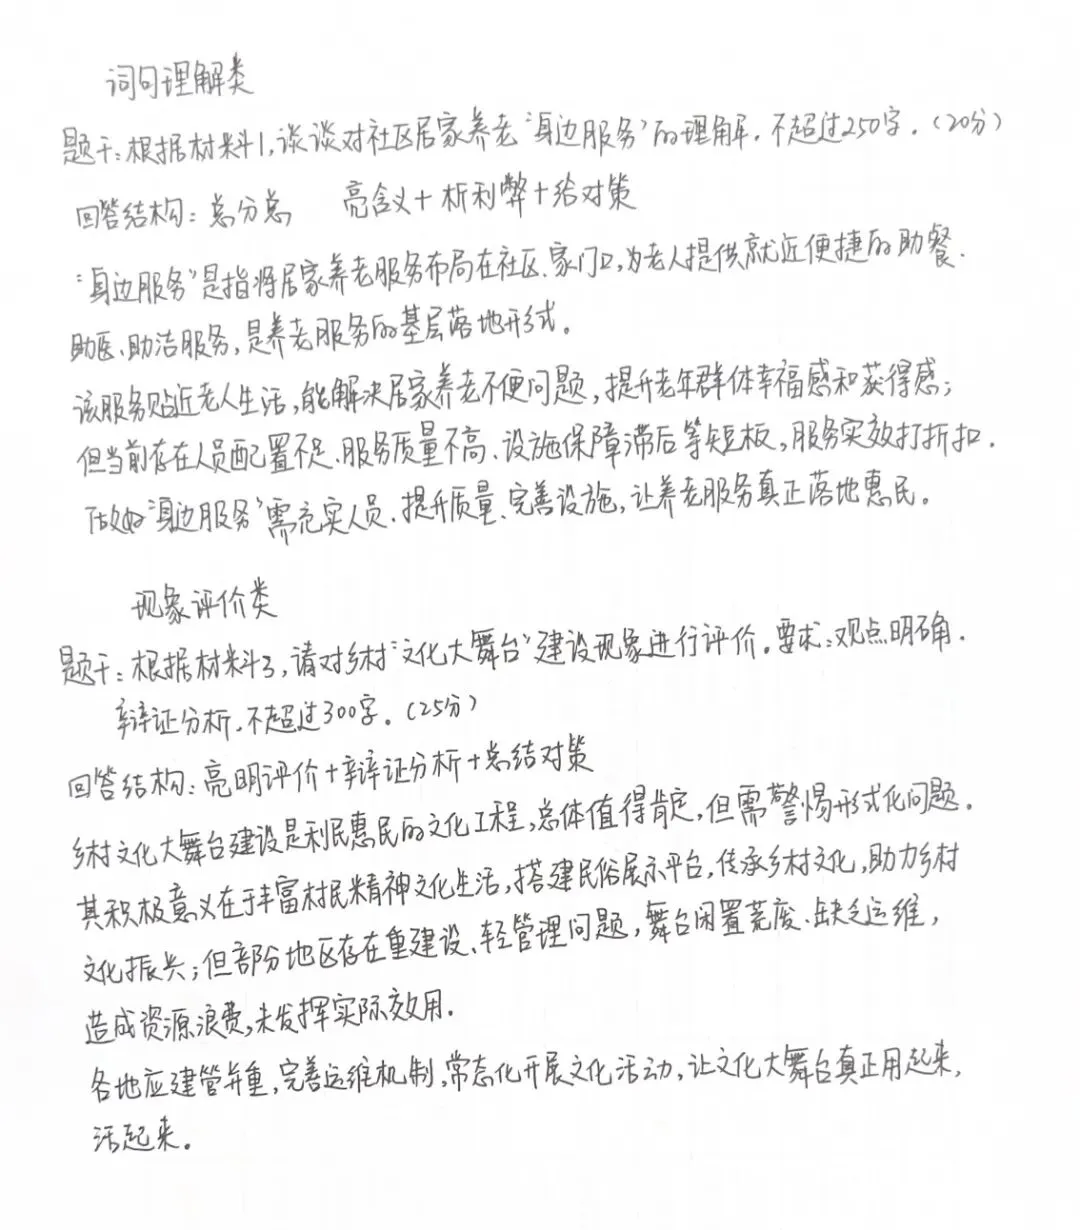 词句理解类
题干：根据材料1，谈谈对社区居家养老“身边服务”的理解，不超过250字。（20分）
回答结构：总分总 亮含义+析利弊+给对策
“身边服务”是指将居家养老服务布局在社区、家门口，为老人提供就近便捷的助餐、
助医、助洁服务，是养老服务的基层落地形式。
该服务贴近老人生活，能解决居家养老不便问题，提升老年群体幸福感和获得感；
但当前存在人员配置不足、服务质量不高、设施保障滞后等短板，服务实效打折扣。
做好“身边服务”需充实人员、提升质量、完善设施，让养老服务真正落地惠民。
现象评价类
题干：根据材料3，请对乡村“文化大舞台”建设现象进行评价。要求：观点明确、
辩证分析，不超过300字。（25分）
回答结构：亮明评价+辩证分析+总结对策
乡村文化大舞台建设是利民惠民的文化工程，总体值得肯定，但需警惕形式化问题。
其积极意义在于丰富村民精神文化生活，搭建民俗展示平台，传承乡村文化，助力乡村
文化振兴；但部分地区存在重建设、轻管理问题，舞台闲置荒废、缺乏运维，
造成资源浪费，未发挥实际效用。
各地应建管并重，完善运维机制，常态化开展文化活动，让文化大舞台真正用起来，
活起来。